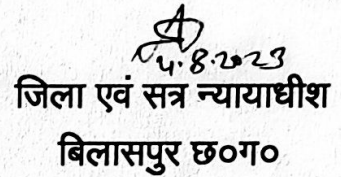 4.8.2023
जिला एवं सत्र न्यायाधीश
बिलासपुर छ०ग०